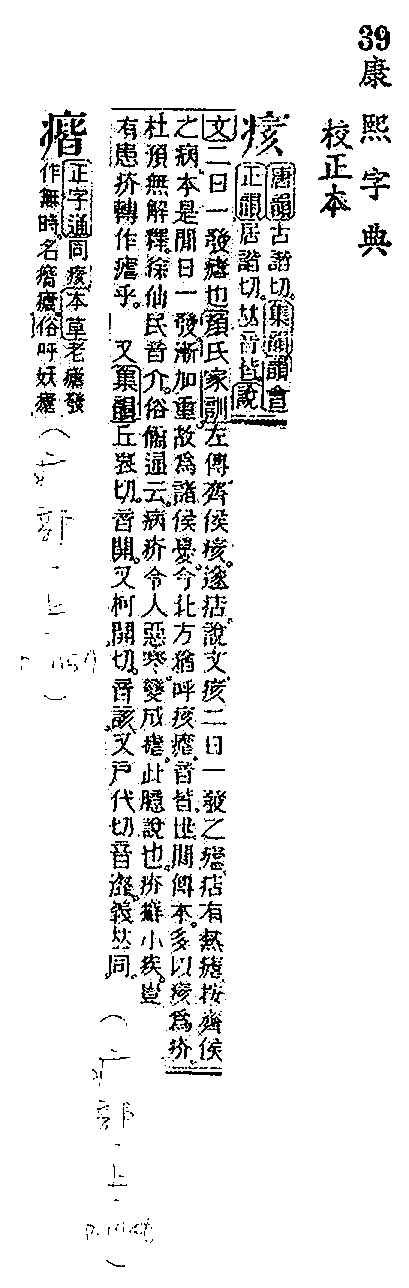 39
康熙字典
校正本
痎
唐韻古諧切集韻韻會
正韻居諧切𠀤音皆說
文二日一發瘧也顏氏家訓左傳齊侯痎遂痁說文痎二日一發之瘧痁有熱瘧按齊侯
之病本是閒日一發漸加重故爲諸侯憂今北方猶呼痎瘧音皆世閒傳本多以痎爲疥
杜預無解釋徐仙民音介俗儒通云病疥令人惡寒變成瘧此臆說也疥癬小疾豈
有患疥轉作瘧乎 又集韻丘哀切音開又柯開切音該又戸代切音瀣義𠀤同
(疒部
瘖
正字通同痎本草老瘧發
作無時名瘖瘧俗呼妖瘧
(疒部